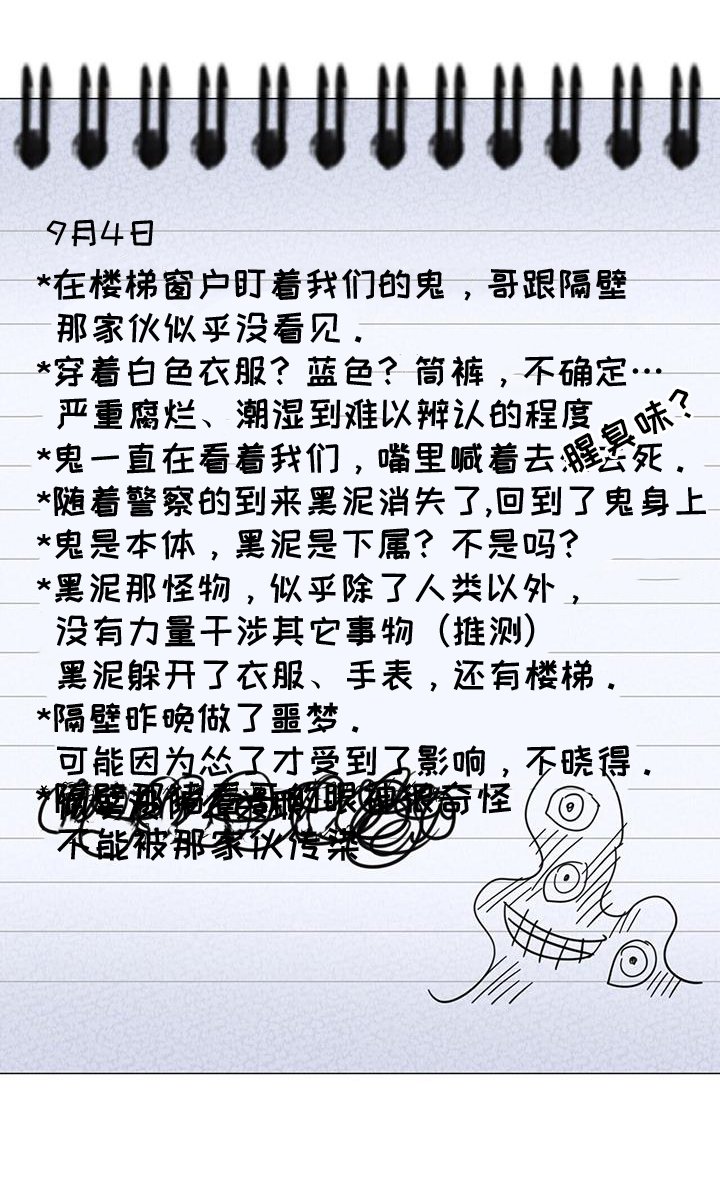 9月4日
*在楼梯窗户盯着我们的鬼，哥跟隔壁
那家伙似乎没看见．
*穿着白色衣服？蓝色？筒裤，不确定…
严重腐烂、潮湿到难以辨认的程度
腥臭味？
*鬼一直在看着我们，嘴里喊着去死去死．
*随着警察的到来黑泥消失了,回到了鬼身上
*鬼是本体，黑泥是下属？不是吗？
*黑泥那怪物，似乎除了人类以外，
没有力量干涉其它事物（推测）
黑泥躲开了衣服、手表，还有楼梯．
*隔壁昨晚做了噩梦．
可能因为怂了才受到了影响，不晓得．
*隔壁 看哥 眼 很奇怪
不能被那家伙传染